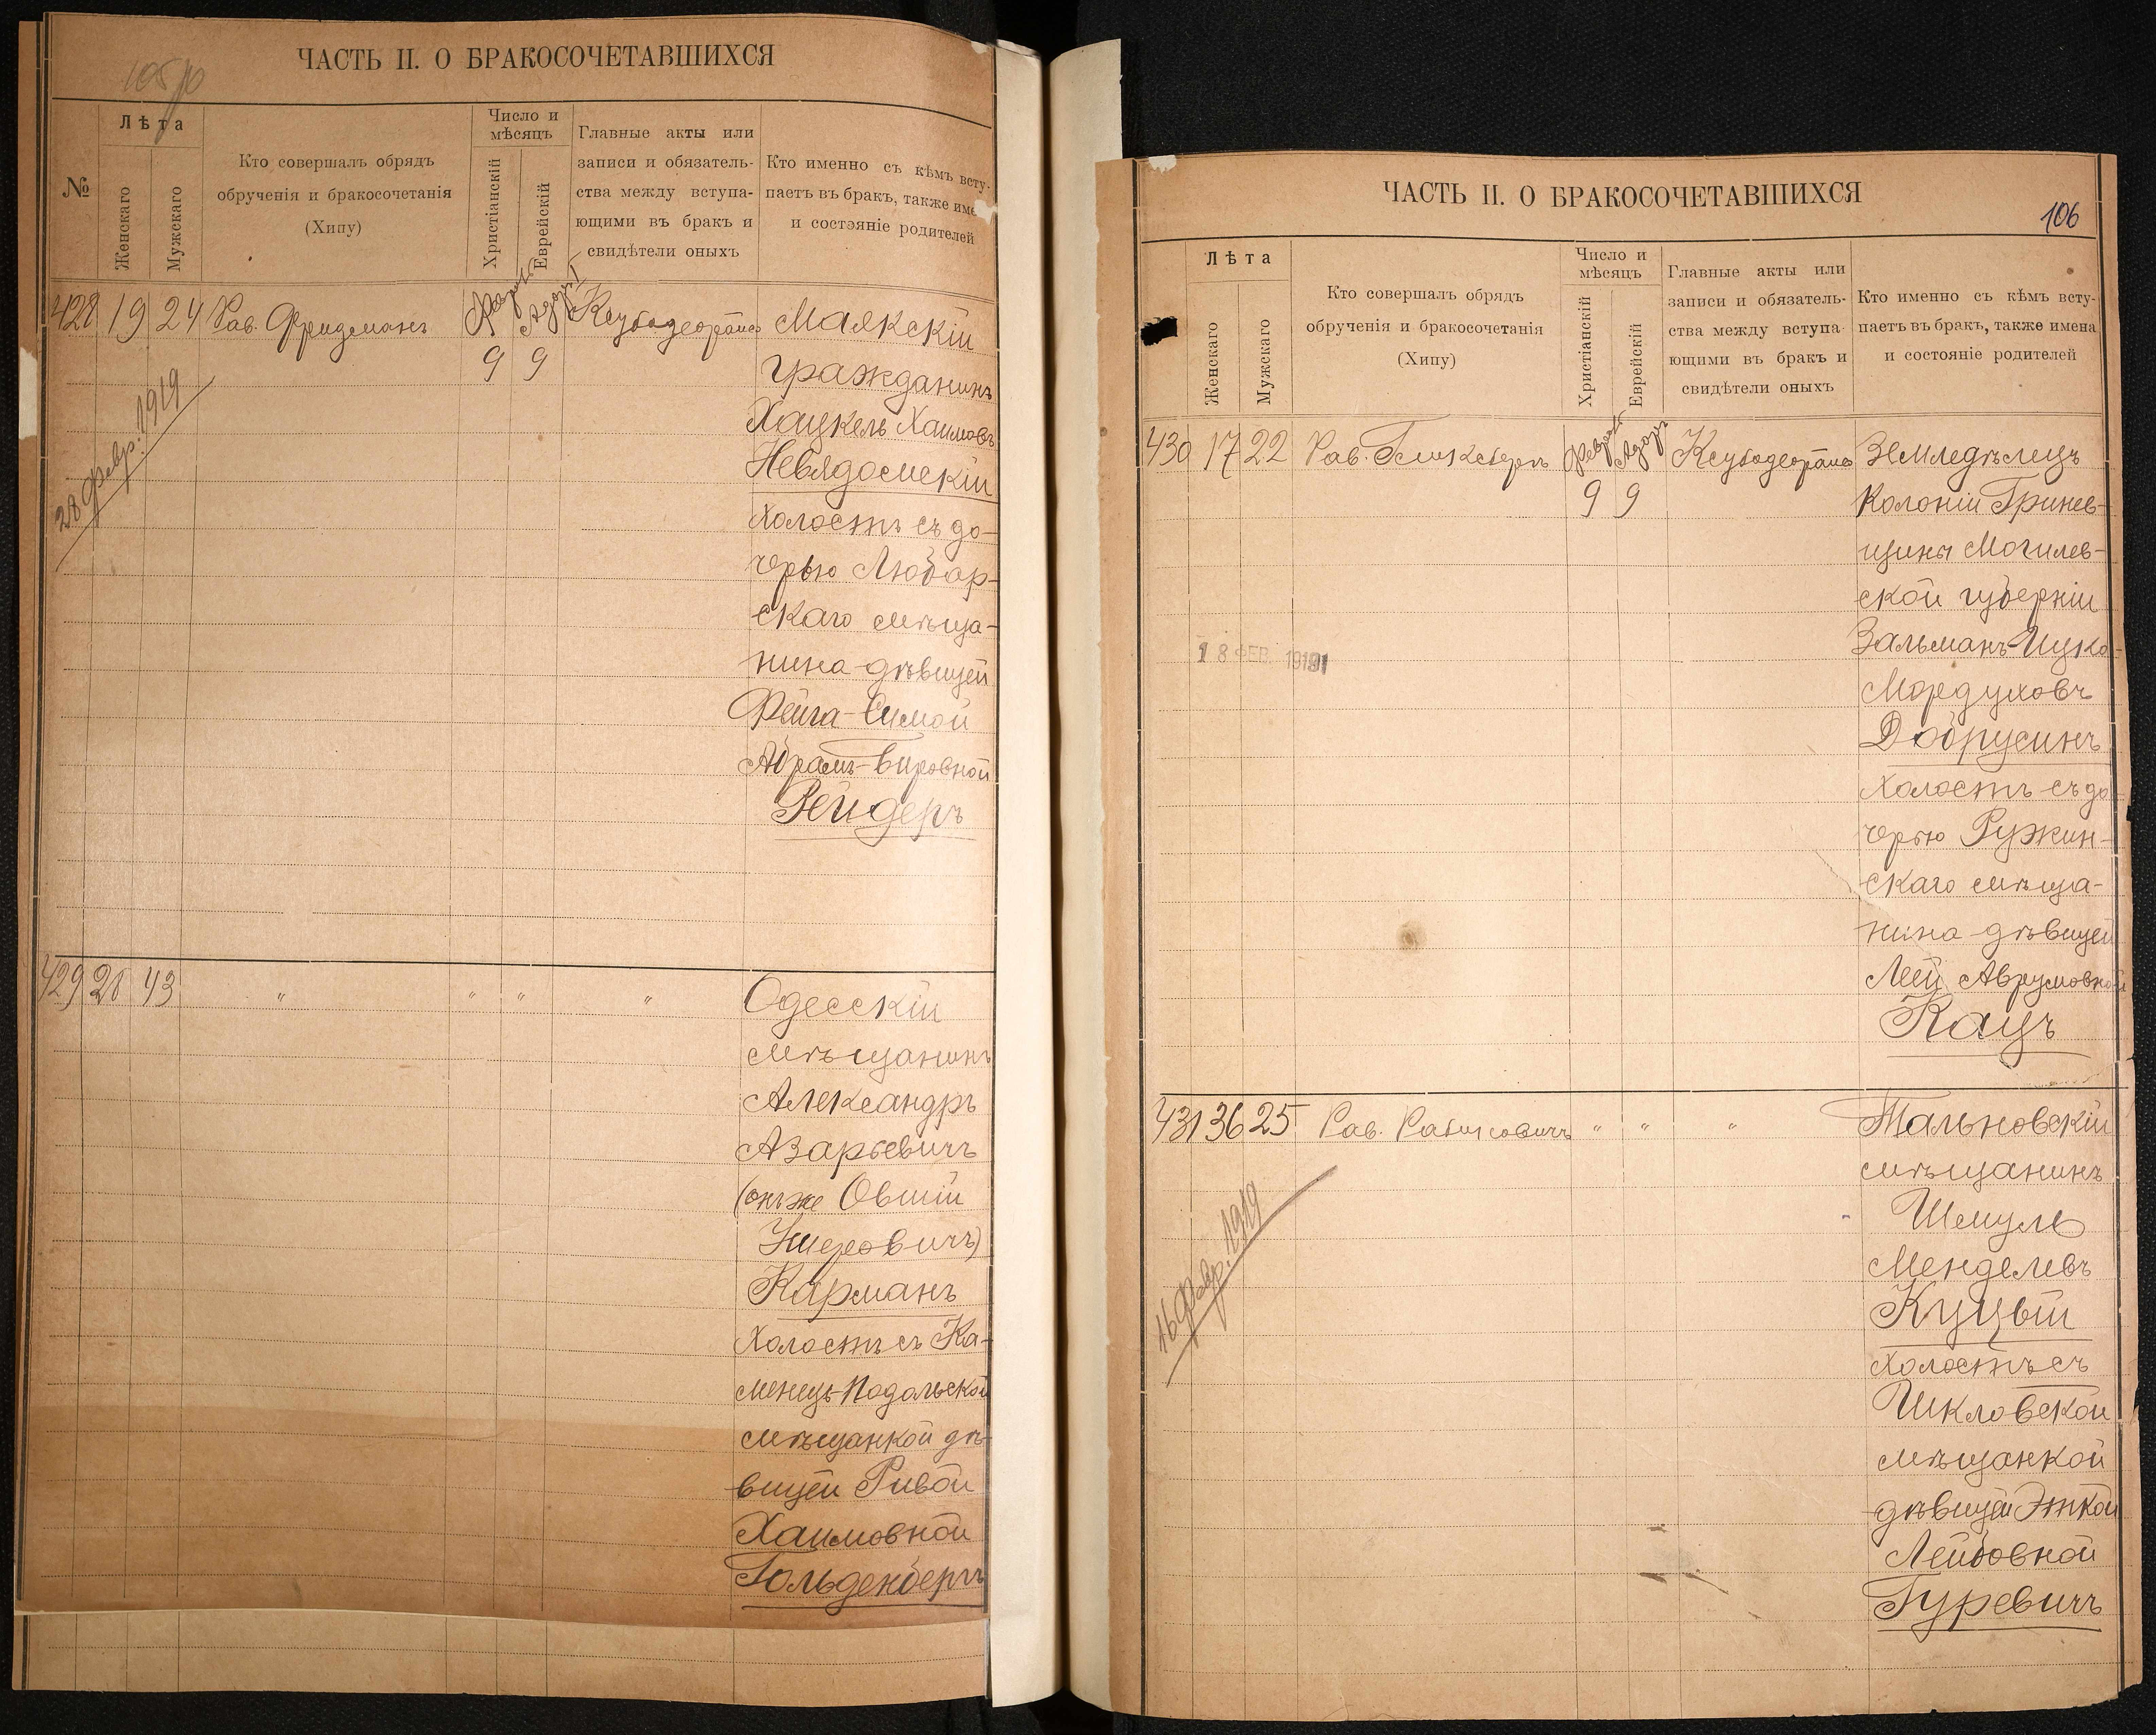 ЧАСТЬ II. О БРАКОСОЧЕТАВШИХСЯ
№
Лѣта
Женскаго
Мужскаго
Кто совершалъ обрядъ
обрученія и бракосочетанія
(Хипу)
Число и
мѣсяцъ
Христіанскій
Еврейскій
Главные акты или
записи и обязатель-
ства между вступа-
ющими въ бракъ и
свидѣтели оныхъ
Кто именно съ кѣмъ всту-
паетъ въ бракъ, также име
и состояніе родителей
428 19 24 Рав. Фридманъ
9 9
Маякскій
гражданинъ
Хацкель Хаимовъ
Невядомскій
холостъ съ до-
черью Любар-
скаго мѣща-
нина дѣвицей
Фейга-Симой
Абрамъ-Беровной
Рейдеръ
28 февр. 1919
429 28 43 " " " "
Одесскій
мѣщанинъ
Александръ
Азарьевичъ
(онъ же Овшій
Карманъ
Холостъ съ Ка-
менецъ-Подольской
мѣщанкой дѣ-
вицей Ривой
Хаимовной
Гольденбергъ
ЧАСТЬ II. О БРАКОСОЧЕТАВШИХСЯ
106
Лѣта
Женскаго
Мужскаго
Кто совершалъ обрядъ
обрученія и бракосочетанія
(Хипу)
Число и
мѣсяцъ
Христіанскій
Еврейскій
Главные акты или
записи и обязатель-
ства между вступа-
ющими въ бракъ и
свидѣтели оныхъ
Кто именно съ кѣмъ всту-
паетъ въ бракъ, также имена
и состояніе родителей
430 17 22 Рав. Гликсбергъ
9 9
Земледѣлецъ
Колоніи Гринев-
щины Могилев-
ской губерніи
Зальманъ-Ицко-
Мордуховъ
Добрусинъ
Холостъ съ до
черью Ружин-
скаго мѣща-
нина дѣвицей
Леей Аврумовной
Кацъ
18 ФЕВ. 1919
431 36 25 Рав. Рабиновичъ " " "
Тальновскій
мѣщанинъ
Шмуль
Менделевъ
Куцый
Холостъ съ
Шкловской
мѣщанкой
дѣвицей Эткой
Лейбовной
Гуревичъ
16 февр. 1919